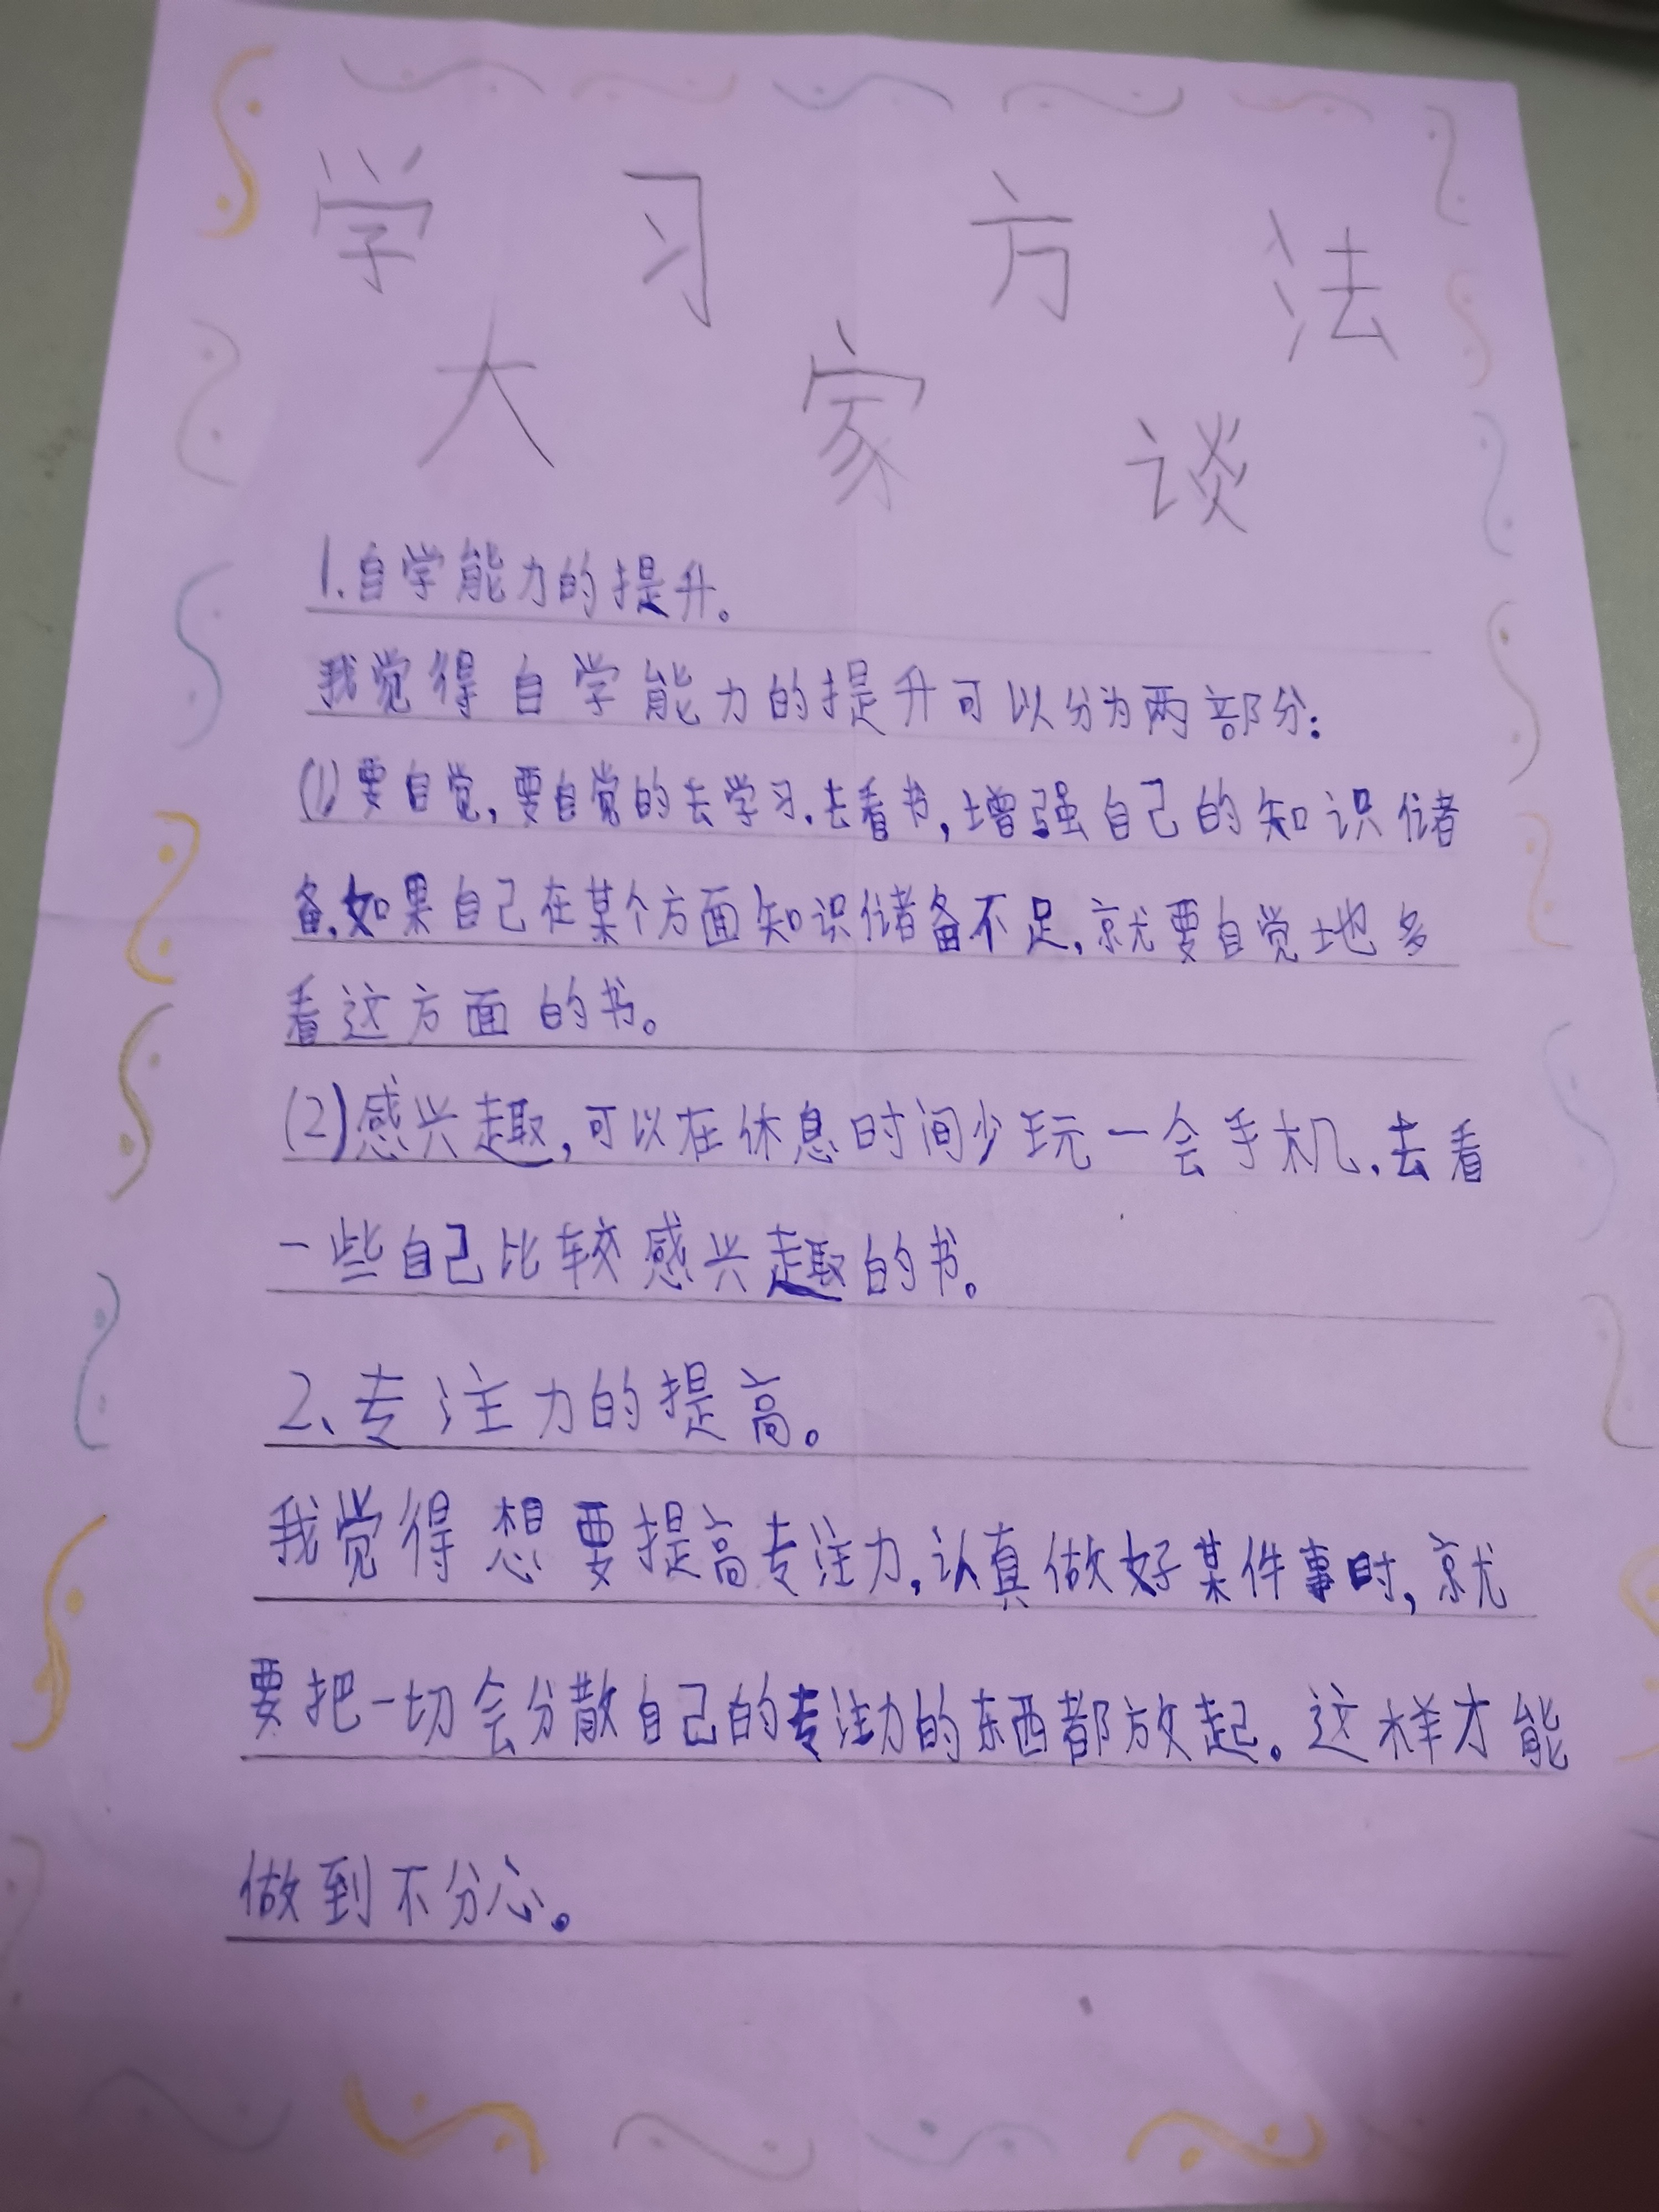 学习方法
大家谈
1.自学能力的提升。
我觉得自学能力的提升可以分为两部分:
(1)要自觉,要自觉的去学习.去看书,增强自己的知识储
备.如果自己在某个方面知识储备不足,就要自觉地多
看这方面的书。
(2)感兴趣,可以在休息时间少玩一会手机.去看
一些自己比较感兴趣的书。
2、专注力的提高。
我觉得想要提高专注力.认真做好某件事时,就
要把一切会分散自己的专注力的东西都放起。这样才能
做到不分心。